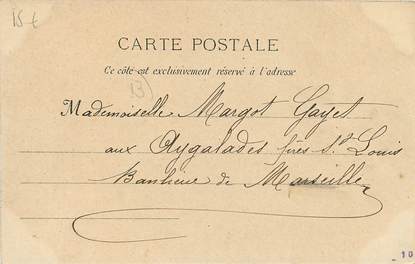 15 €
CARTE POSTALE
Ce côté est exclusivement réservé à l'adresse
13
Mademoiselle Margot Gayet
aux Aygalades près St Louis
Banlieue de Marseille
10